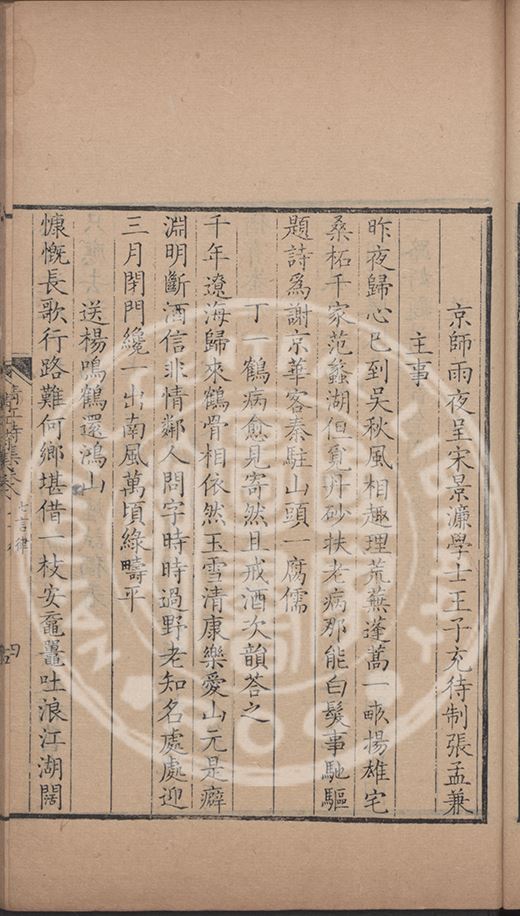 京師雨夜呈宋景濂學士王子充待制張孟兼
主事
昨夜歸心已到吳秋風相趣理荒蕪蓬蒿一畝揚雄宅
桑柘千家范蠡湖但覓丹砂扶老病那能白髮事馳驅
題詩爲謝京華客秦駐山頭一腐儒
丁一鶴病愈見寄然且戒酒次韻荅之
千年遼海歸來鶴骨相依然玉雪清康樂愛山元是癖
淵明斷酒信非情鄰人問字時時過野老知名處處迎
三月閉門纔一出南風萬頃綠疇平
送楊鳴鶴還鴻山
慷慨長歌行路難何鄉堪借一枝安黿鼉吐浪江湖闊
清江詩集卷
七言律